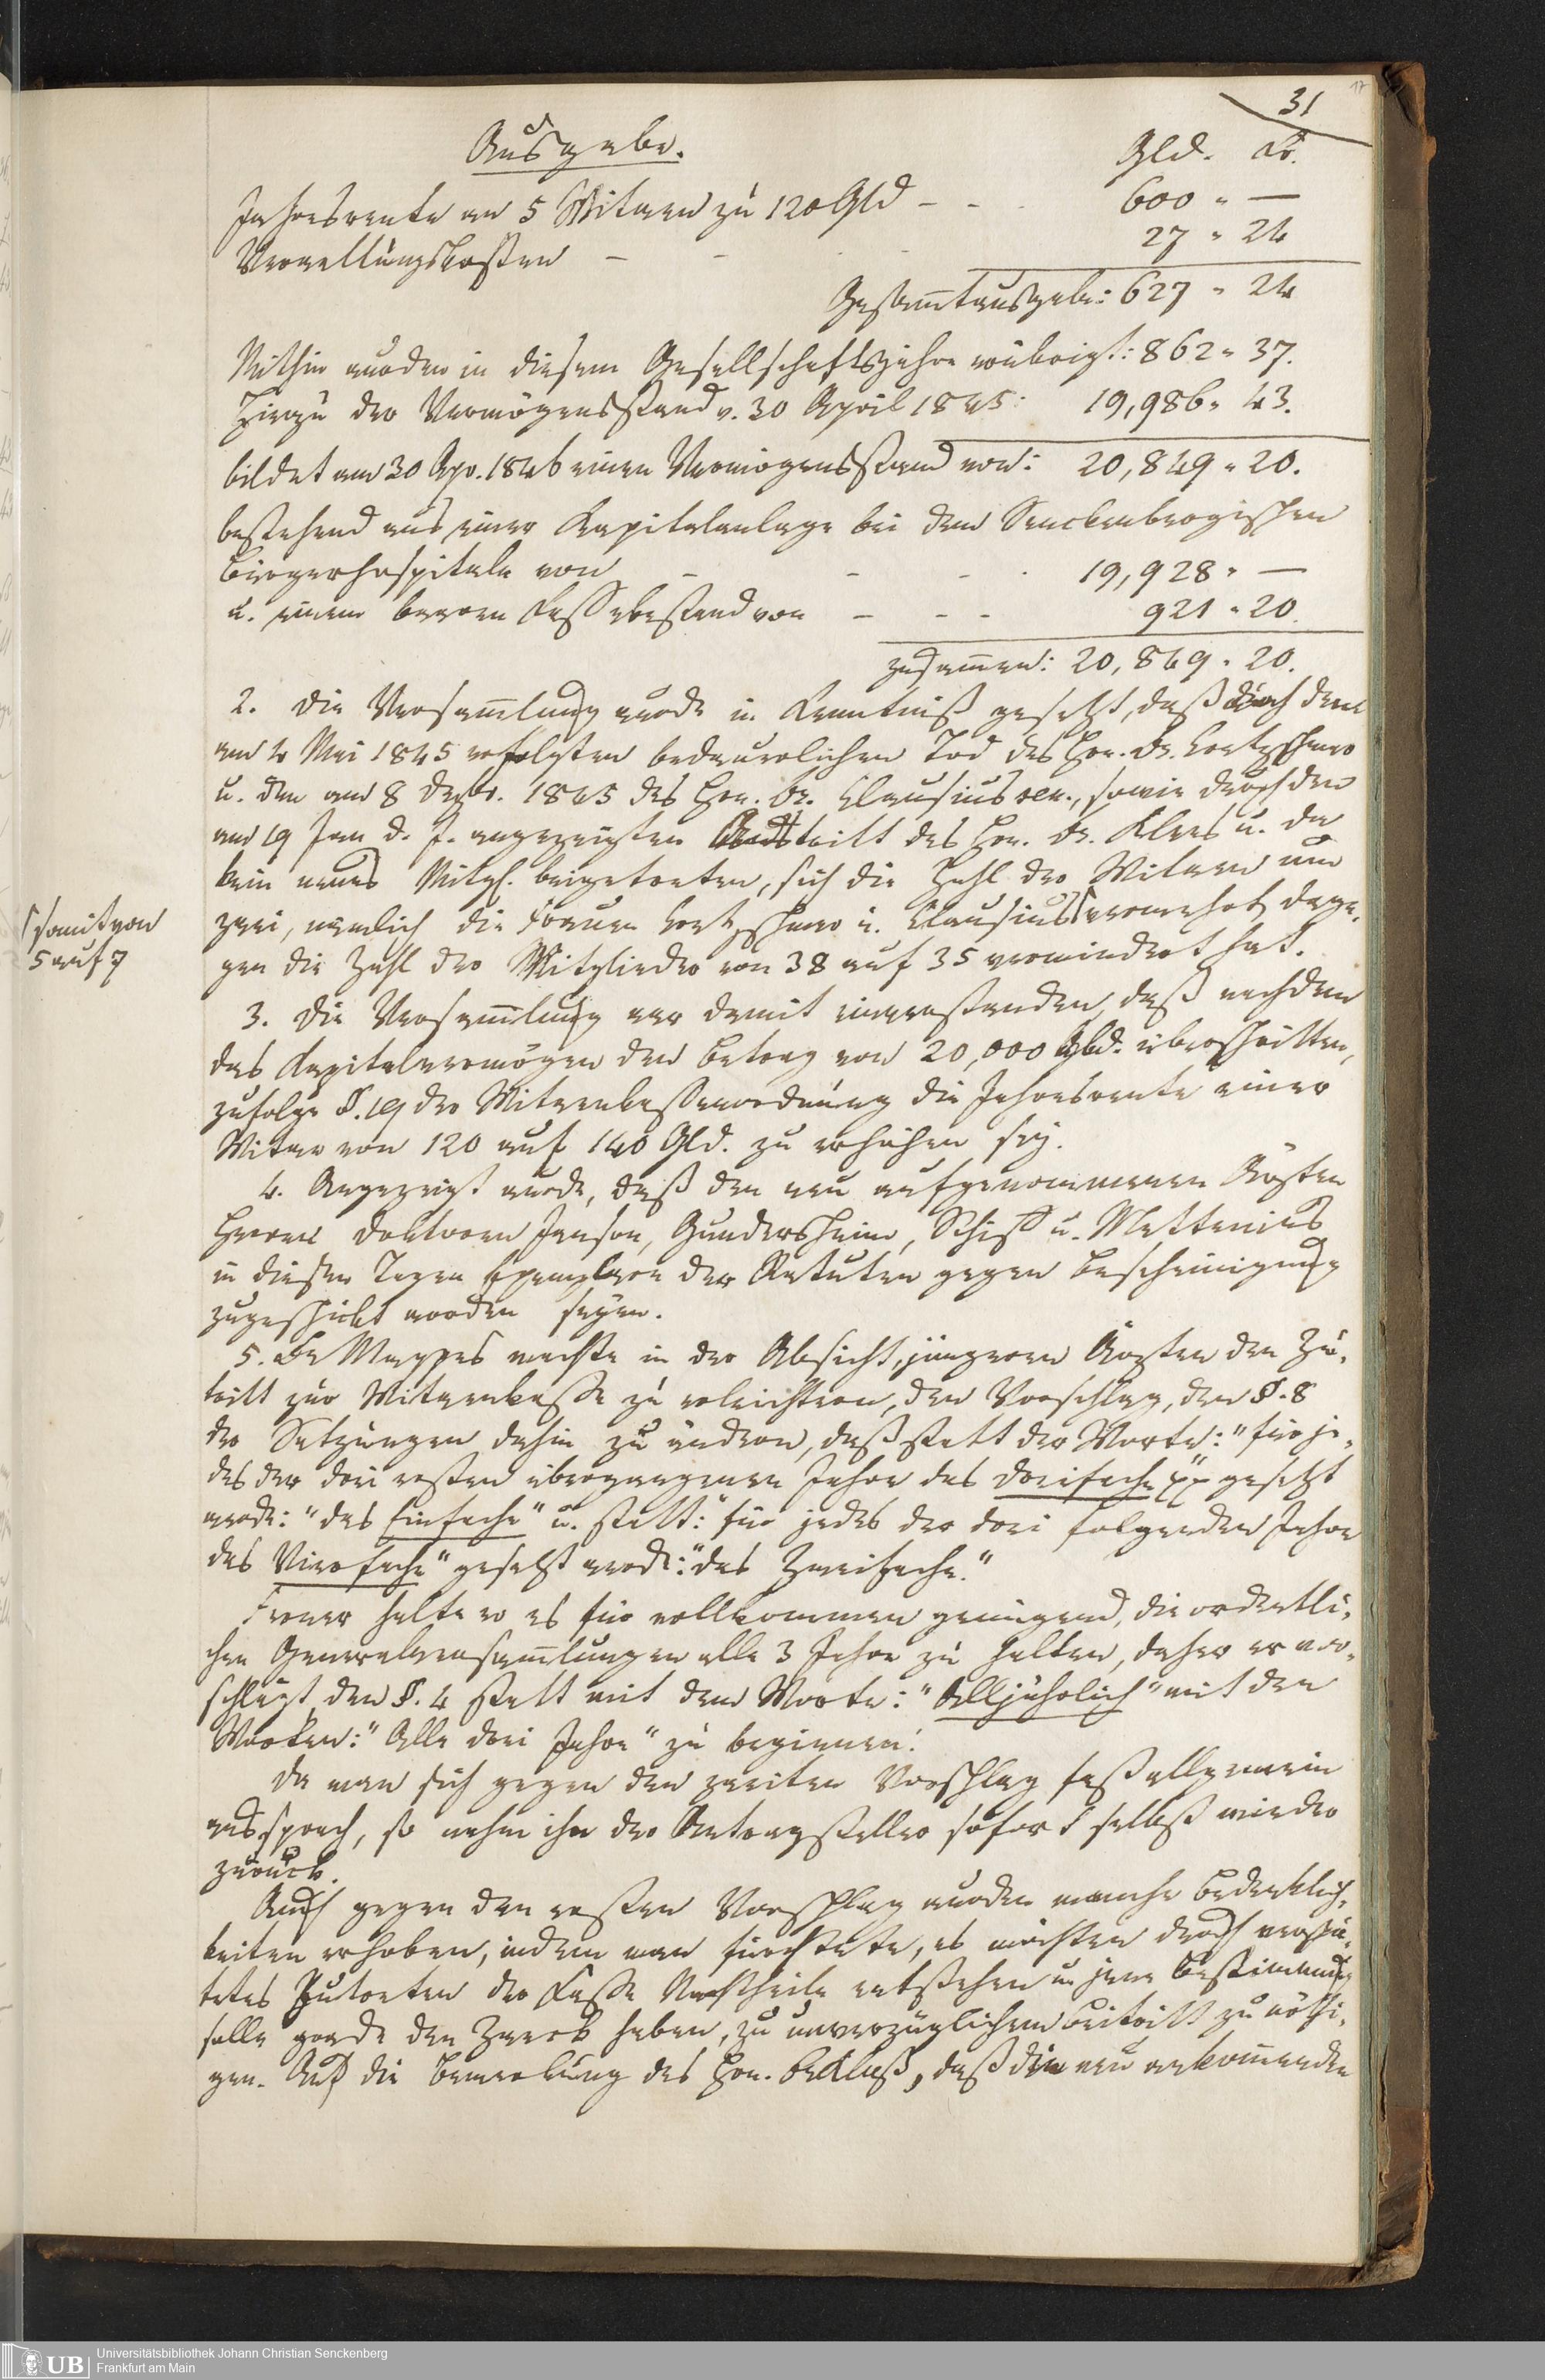 31
17
Ausgabe.
Gld. Kr.
Jahresrente an 5 Witwen zu 120 Gld - - 600 " —
Verwaltungskosten - - 27 " 24
Gesammtausgabe: 627 " 24
Mithin wurden in diesem Gesellschaftsjahre erübrigt: 862 " 37.
Hierzu der Vermögensstand v. 30 April 1845: 19,986 " 43.
bildet am 30 Apr. 1846 einen Vermögensstand von: 20,849 " 20.
bestehend aus einer Kapitalanlage bei dem Senckenbergischen
Bürgerhospitale von - - - . 19,928 " —
u. einem baaren Kassebestand von - - - 921 " 20.
zusammen: 20,849 " 20.
2. Die Versammlung wurde in Kenntniß gesetzt, daß durch den
am 4 Mai 1845 erfolgten bedauerlichen Tod des Hrn. Dr.
u. den am 8 Dezbr. 1845 des Hrn. Dr. Clausius sen., sowie durch den
am 19 Jan d. J. angezeigten Austritt des Hrn. Dr. Kloß u. da
kein neues Mitgl. beigetreten, sich die Zahl der Witwen um
zwei, nämlich die Frauen u. Clausius vermehrt, dage-
somit von
5 auf 7
gen die Zahl der Mitglieder von 38 auf 35 vermindert hat.
3. Die Versammlung war damit einverstanden, daß nachdem
das Kapitalvermögen den Betrag von 20,000 Gld. überschritten,
zufolge §. 19 der Witwenkassenordnung die Jahresrente einer
Witwe von 120 auf 140 Gld. zu erhöhen sey.
4. Angezeigt wurde, daß den neu aufgenommenen Ärzten
Herren Doktoren Janson, Gundersheim, Schiff u. Mettenius
in diesen Tagen Exemplare der Statuten gegen Bescheinigung
zugeschickt worden seyen.
5. Dr Mappes machte in der Absicht, jüngeren Ärzten den Zu-
tritt zur Witwenkasse zu erleichtern, den Vorschlag, den §. 8
der Satzungen dahin zu ändern, daß statt der Worte: "für je-
des der drei ersten übergangenen Jahre das Dreifache" gesetzt
werde: "das Einfache" u. statt: "für jedes der drei folgenden Jahre
das Vierfache" gesetzt werde: "das Zweifache."
Ferner halte er es für vollkommen genügend, die ordentli-
chen Generalversammlungen alle 3 Jahre zu halten, daher er vor-
schlägt, den §. 4 statt mit dem Worte: "Alljährlich" mit den
Worten: "Alle drei Jahre" zu beginnen.
Da man sich gegen den zweiten Vorschlag fast allgemein
aussprach, so nahm ihn der Antragsteller sofort selbst wieder
zurück.
Auch gegen den ersten Vorschlag wurden manche Bedenklich-
keiten erhoben, indem man fürchtete, es möchten durch verspä-
tetes Zutreten der Kasse Nachtheile entstehen u. jene Bestimmung
solle grade den Zweck haben, zu unverzüglichem Beitritt zu nöthi-
gen. Auf die Bemerkung des Hrn. Dr Kloß, daß die neu ankommenden
UB Universitätsbibliothek Johann Christian Senckenberg
Frankfurt am Main